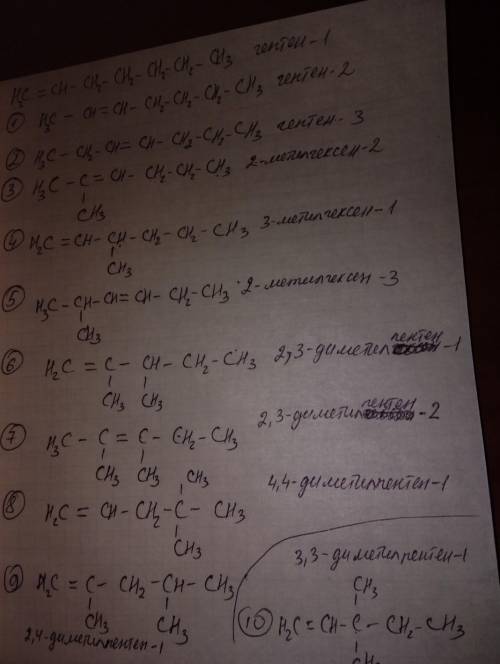 H₂C = CH - CH₂ - CH₂ - CH₂ - CH₂ - CH3 гептен-1
① H₃C - CH = CH - CH₂ - CH₂ - CH₂ - CH3 гептен-2
② H₃C - CH₂ - CH = CH - CH₂ - CH₂ - CH3 гептен-3
③ H₃C - C = CH - CH₂ - CH₂ - CH3 2-метилгексен-2
CH3
④ H₂C = CH - CH - CH₂ - CH₂ - CH3 3-метилгексен-1
CH3
⑤ H₃C - CH - CH = CH - CH₂ - CH3 2-метилгексен-3
CH3
⑥ H₂C = C - CH - CH₂ - CH3 2,3-диметилпентен-1
CH3 CH3
⑦ H₃C - C = C - CH₂ - CH3 2,3-диметилпентен-2
CH3 CH3
CH3
⑧ H₂C = CH - CH₂ - C - CH3 4,4-диметилпентен-1
CH3
⑨ H₂C = C - CH2 - CH - CH3
CH3 CH3
2,4-диметилпентен-1
3,3-диметилпентен-1
CH3
⑩ H₂C = CH - C - CH₂ - CH3
CH3